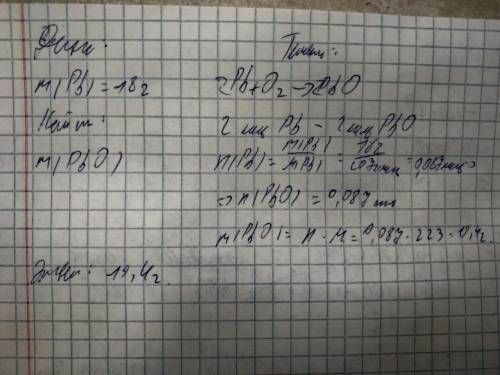 Дано:
m(Pb)=18г
Найти:
m(PbO)
Решение:
2Pb+O₂→2PbO
2 моль Pb - 2 моль PbO
n(Pb)= m(Pb)/M(Pb) = 18г/207г/моль = 0,087моль
⇒ n(PbO)=0,087моль
m(PbO)= n·M=0,087·223=19,4г.
Ответ: 19,4г.